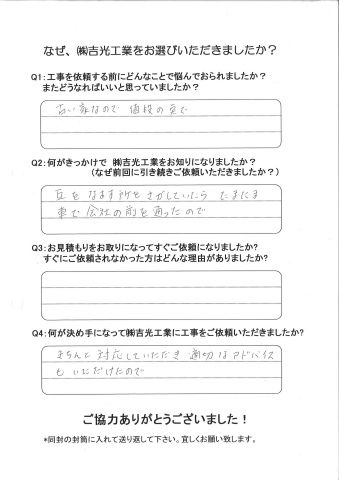 なぜ、㈱吉光工業をお選びいただきましたか？
Q1：工事を依頼する前にどんなことで悩んでおられましたか？
またどうなればいいと思っていましたか？
古い家なので 値段の点で
Q2：何がきっかけで ㈱吉光工業をお知りになりましたか？
（なぜ前回に引き続きご依頼いただきましたか？）
瓦を なおす所を さがしていたら たまたま
車で 会社の前を通ったので
Q3：お見積もりをお取りになってすぐご依頼になりましたか？
すぐにご依頼されなかった方はどんな理由がありますか？
Q4：何が決め手になって㈱吉光工業に工事をご依頼いただきましたか？
きちんと 対応していただき 適切なアドバイス
も いただけたので
ご協力ありがとうございました！
*同封の封筒に入れて送り返して下さい。宜しくお願い致します。